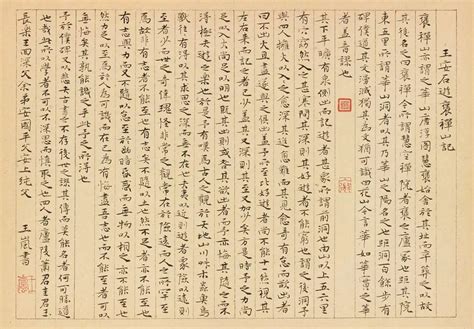 王安石遊褒禪山記
褒禪山亦謂之華山唐浮圖慧褒始舍於其址而卒葬之以故
其後名之曰褒禪今所謂慧空禪院者褒之廬冢也距其院
東五里所謂華山洞者以其乃華山之陽名之也距洞百餘步有
碑仆道其文漫滅獨其為文猶可識曰花山今言華如華實之華
者蓋音謬也
其下平曠有泉側出而記遊者甚眾所謂前洞也由山以上五六里
有穴窈然入之甚寒問其深則其好遊者不能窮也謂之後洞余
與四人擁火以入入之愈深其進愈難而其見愈奇有怠而欲出者
曰不出火且盡遂與之俱出蓋予所至比好遊者尚不能十一然視其
左右來而記之者已少蓋其又深則其至又加少矣方是時予之力尚足
以入火尚足以明也既其出則或咎其欲出者而予亦悔其隨之而不
得極夫遊之樂也於是予有嘆焉古人之觀於天地山川草木蟲魚鳥
獸往往有得以其求思之深而無不在也夫夷以近則遊者眾險以遠則
至者少而世之奇偉瑰怪非常之觀常在於險遠而人之所罕
至焉故非有志者不能至也有志矣不隨以止也然力不足者亦不能至也
有志與力而又不隨以怠至於幽暗昏惑而無物以相之亦不能至也
然力足以至焉於人為可譏而在己為有悔盡吾志也而不能至者可以
無悔矣其孰能譏之乎此予之所得也
余於仆碑又以悲夫古書之不存後世之謬其傳而莫能名者何可勝道
也哉此所以學者不可以不深思而慎取之也四人者廬陵蕭君圭君玉
長樂王回深父余弟安國平父安上純父 王嵐書